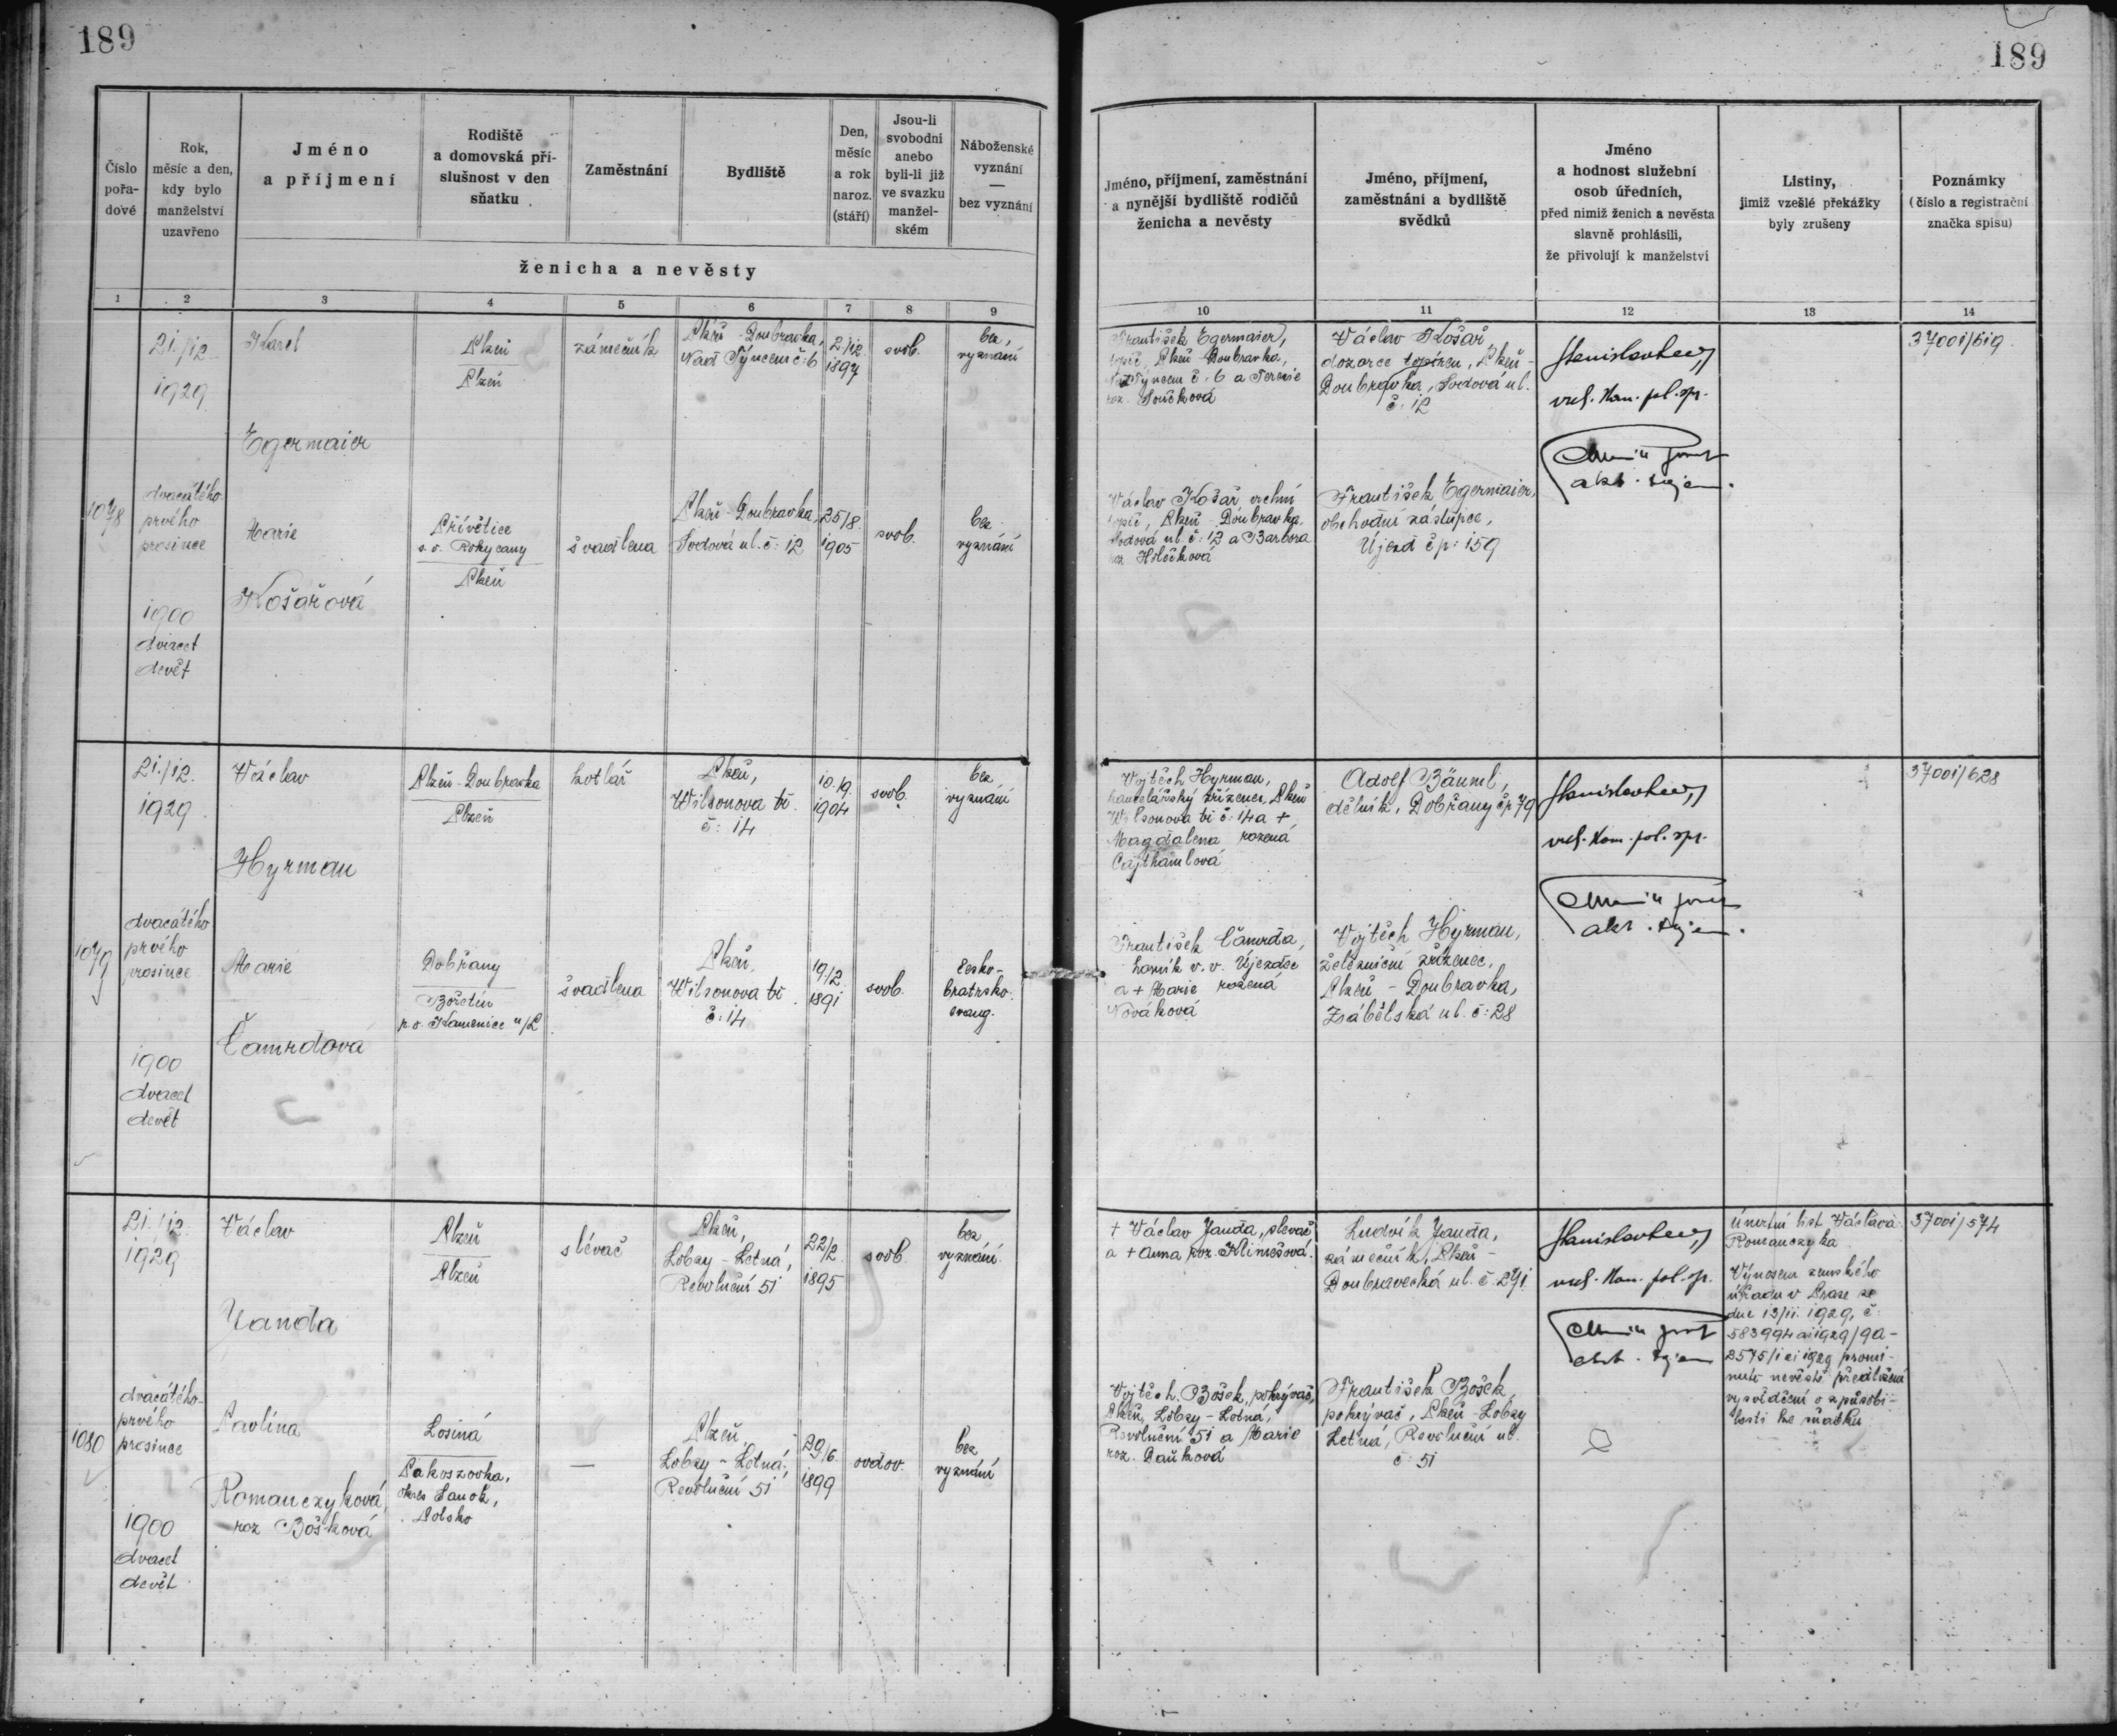 189
189
Číslo
pořa-
dové
Rok,
měsíc a den,
kdy bylo
manželství
uzavřeno
Jméno
a příjmení
Rodiště
a domovská pří-
slušnost v den
sňatku
Zaměstnání
Bydliště
Den,
měsíc
a rok
naroz.
(stáří)
Jsou-li
svobodni
anebo
byli-li již
ve svazku
manžel-
ském
Náboženské
vyznání
—
bez vyznání
ženicha a nevěsty
1 2 3 4 5 6 7 8 9
Jméno, příjmení, zaměstnání
a nynější bydliště rodičů
ženicha a nevěsty
Jméno, příjmení,
zaměstnání a bydliště
svědků
Jméno
a hodnost služební
osob úředních,
před nimiž ženich a nevěsta
slavně prohlásili,
že přivolují k manželství
Listiny,
jimiž vzešlé překážky
byly zrušeny
Poznámky
(číslo a registrační
značka spisu)
10 11 12 13 14
1078
21./12.
1929
dvacátého
prvého
prosince
1900
dvacet
devět
Karel
Egermaier
Plzeň
Plzeň
zámečník
Plzeň-Doubravka,
Nad Týncem č: 6
2/12.
1897
svob.
bez
vyznání
Marie
Košařová
Přívětice
s.o. Rokycany
Plzeň
švadlena
Plzeň-Doubravka,
Sodová ul. č: 12
25/8.
1905
svob.
bez
vyznání
František Egermaier,
topič, Plzeň-Doubravka,
Nad Týncem č. 6 a Terezie
roz. Součková
Václav Košař, vrchní
topič, Plzeň-Doubravka,
Sodová ul. č: 12 a Barbora
roz. Hilečková
Václav Košař,
dozorce topíren, Plzeň-
Doubravka, Sodová ul.
č: 12
František Egermaier,
obchodní zástupce,
Újezd čp: 159
vrch. kom. pol. spr.
3700i/619
1079
21./12.
1929
dvacátého
prvého
prosince
1900
dvacet
devět
Václav
Hyrman
Plzeň-Doubravka
Plzeň
kotlář
Plzeň,
Wilsonova tř.
č: 14
10./9.
1904
svob.
bez
vyznání
Marie
Čamrdová
Dobřany
p.o. Kamenice n/L
švadlena
Plzeň,
Wilsonova tř.
č: 14
19/2.
1891
svob.
česko-
bratrsko-
evang.
Vojtěch Hyrman,
kancelářský zřízenec, Plzeň
Wilsonova tř. č: 14 a +
Magdalena rozená
Cajthamlová
František Čamrda,
horník v.v. Újezdec
a + Marie rozená
Nováková
Adolf Bäuml,
dělník, Dobřany čp 79
Vojtěch Hyrman,
železniční zřízenec,
Plzeň - Doubravka,
Zábělská ul. č: 28
vrch. kom. pol. spr.
3700i/628
1080
21./12.
1929
dvacátého-
prvého
prosince
1900
dvacet
devět
Václav
Janda
Plzeň
Plzeň
slévač
Plzeň,
Lobzy-Letná,
Revoluční 51
22/2.
1895
svob.
bez
vyznání
Pavlína
Romanczyková
roz Bošková
Losiná
Pakoszovka,
okres Sanok,
Polsko
—
Plzeň,
Lobzy-Letná,
Revoluční 51
29/6.
1899
ovdov.
bez
vyznání
+ Václav Janda, slevač
a + Anna roz. Klimešová.
Vojtěch Bošek, pokrývač,
Plzeň, Lobzy-Letná,
Revoluční 51 a Marie
roz. Daňková
Ludvík Janda,
zámečník, Plzeň-
Doubravecká ul. č: 291
František Bošek,
pokrývač, Plzeň-Lobzy
Letná, Revoluční ul.
č: 51
vrch. kom. pol. sp.
Úmrtní list Václava
Romanczyka
Výnosem zemského
úřadu v Praze ze
dne 13/11. 1929, č:
583994 ai 1929/9a-
2575/1 ei 1929 promi-
nuto nevěstě předložení
vysvědčení o způsobi-
losti ke sňatku
3700i/574